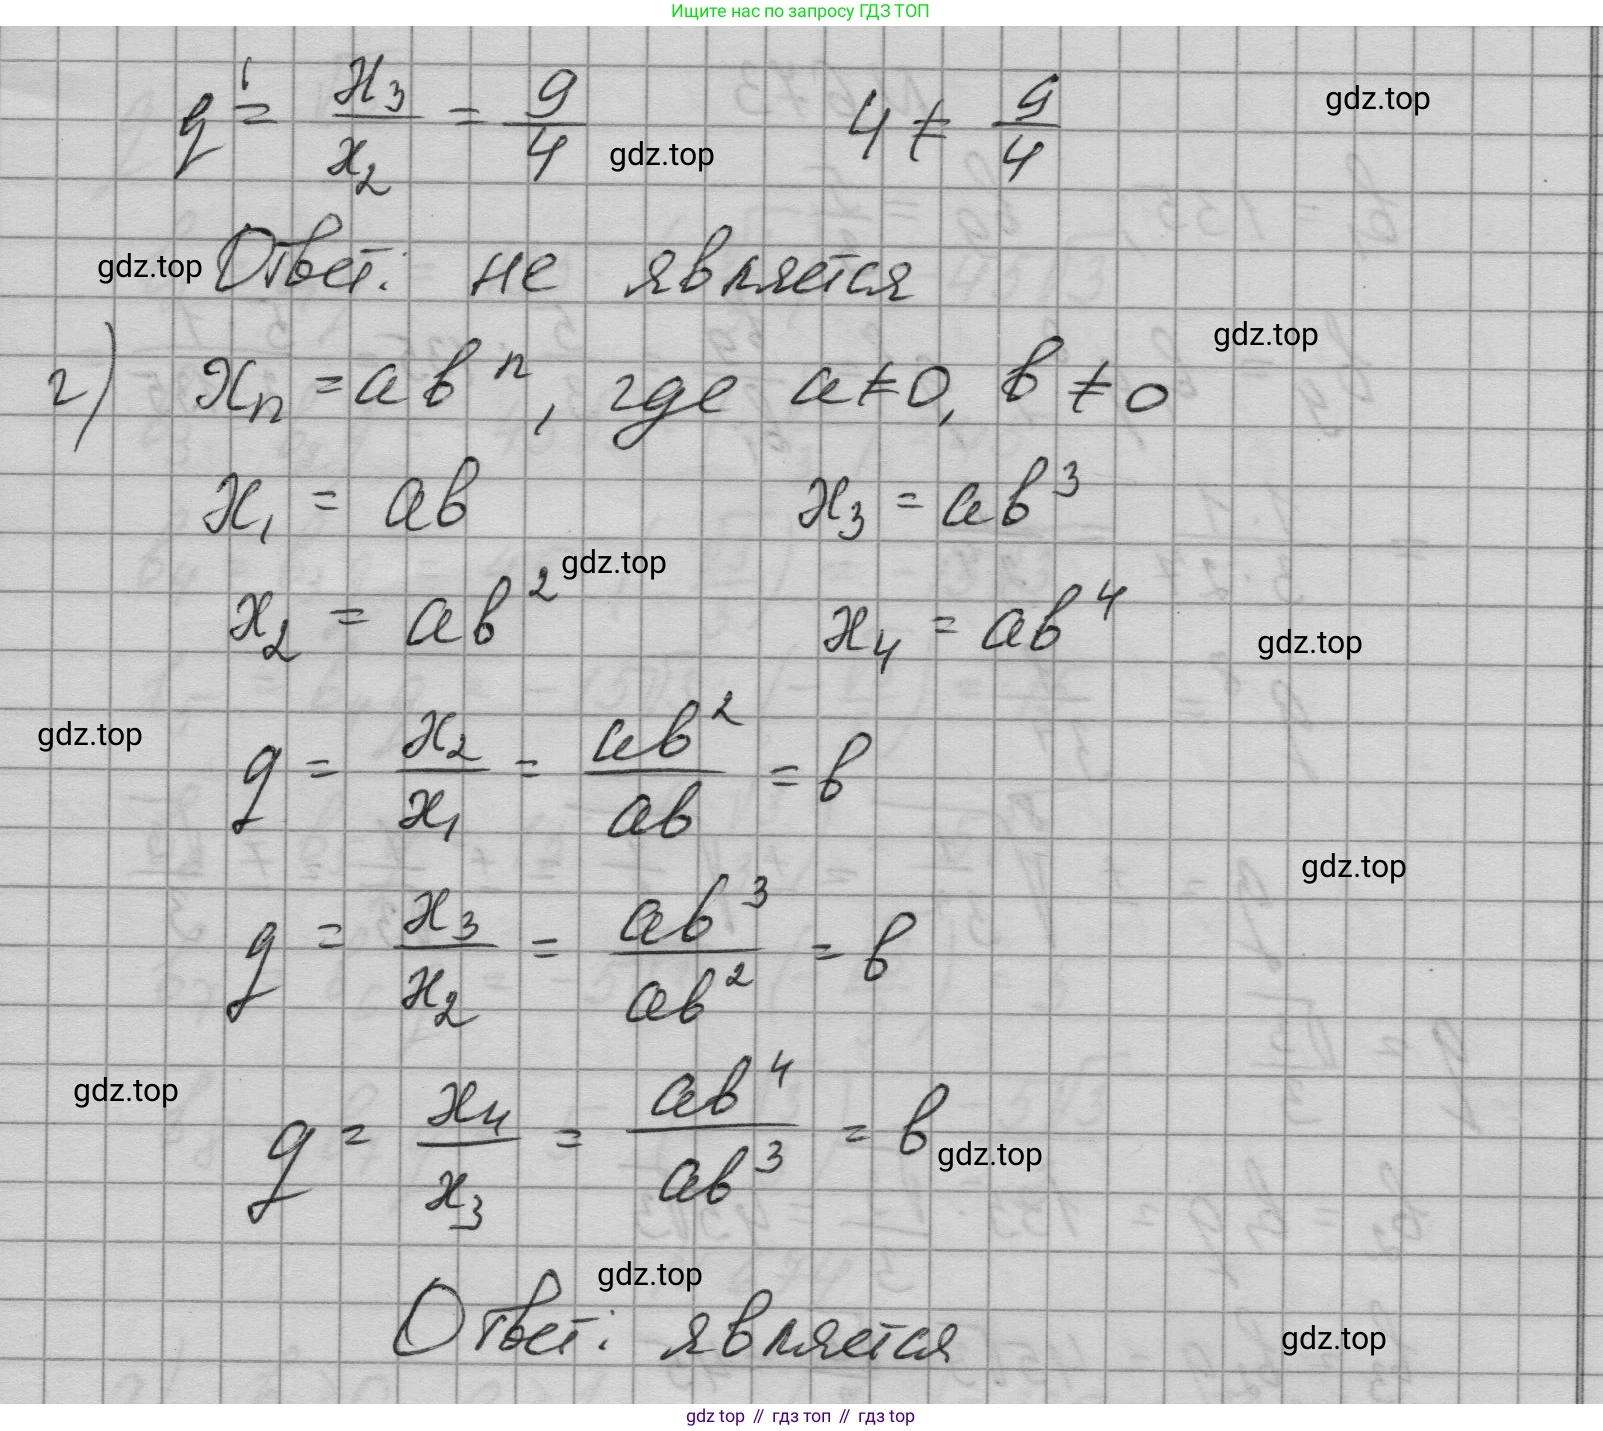 Ищите нас по запросу ГДЗ ТОП
q' = x₃/x₂ = 9/4    4 ≠ 9/4
gdz.top
gdz.top
Ответ: не является
gdz.top
gdz.top
г) xₙ = abⁿ, где a≠0, b≠0
x₁ = ab    x₃ = ab³
gdz.top
x₂ = ab²    x₄ = ab⁴
gdz.top
gdz.top
q = x₂/x₁ = ab²/ab = b
gdz.top
q = x₃/x₂ = ab³/ab² = b
gdz.top
q = x₄/x₃ = ab⁴/ab³ = b
gdz.top
gdz.top
Ответ: является
gdz.top
gdz top // гдз топ // gdz top